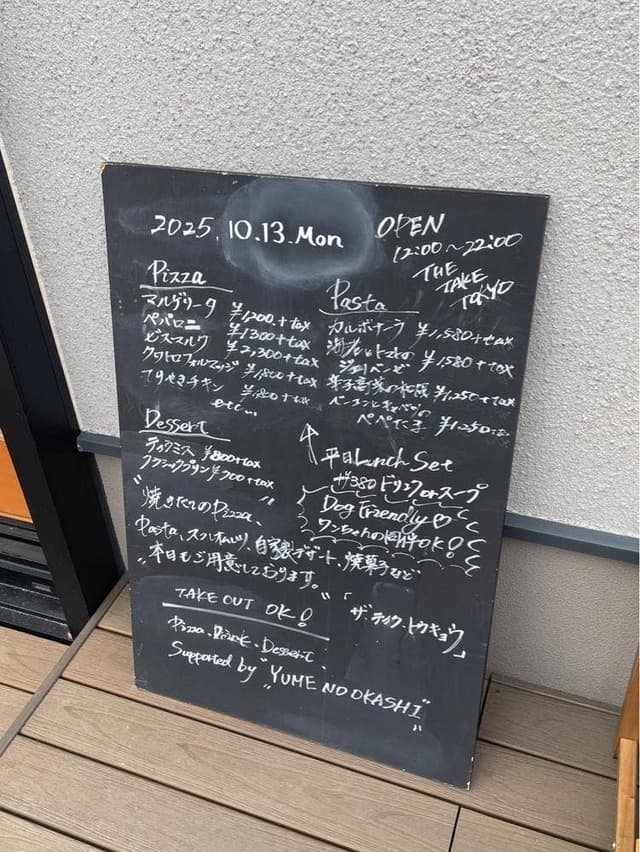 2025.10.13.Mon
OPEN
12:00〜22:00
THE
TAKE
TOKYO
Pizza
マルゲリータ ¥1200.+tax
ペパロニ ¥1300+tax
ビスマルク ¥2,300+tax
クワトロフォルマッジ ¥1,800+tax
てりやきチキン ¥1,800+tax
etc...
Pasta
カルボナーラ ¥1,580+tax
海老とトマトの
ジェノベーゼ ¥1,580+tax
¥1,250+tax
ベーコンとキャベツの
ペペたま ¥1,250+tax
Dessert
ティラミス ¥800+tax
クラシックプリン ¥700+tax
平日Lunch Set
¥380 ドリンクorスープ
Dog Friendly♡
ワンちゃんの同伴OK!
"焼きたてのPizza、
Pasta、自家製デザート、焼菓子など
本日もご用意しております。"
TAKE OUT OK!
「ザ・テイク・トウキョウ」
Pizza、Drink、Dessert、
Supported by "YUME NO OKASHI"